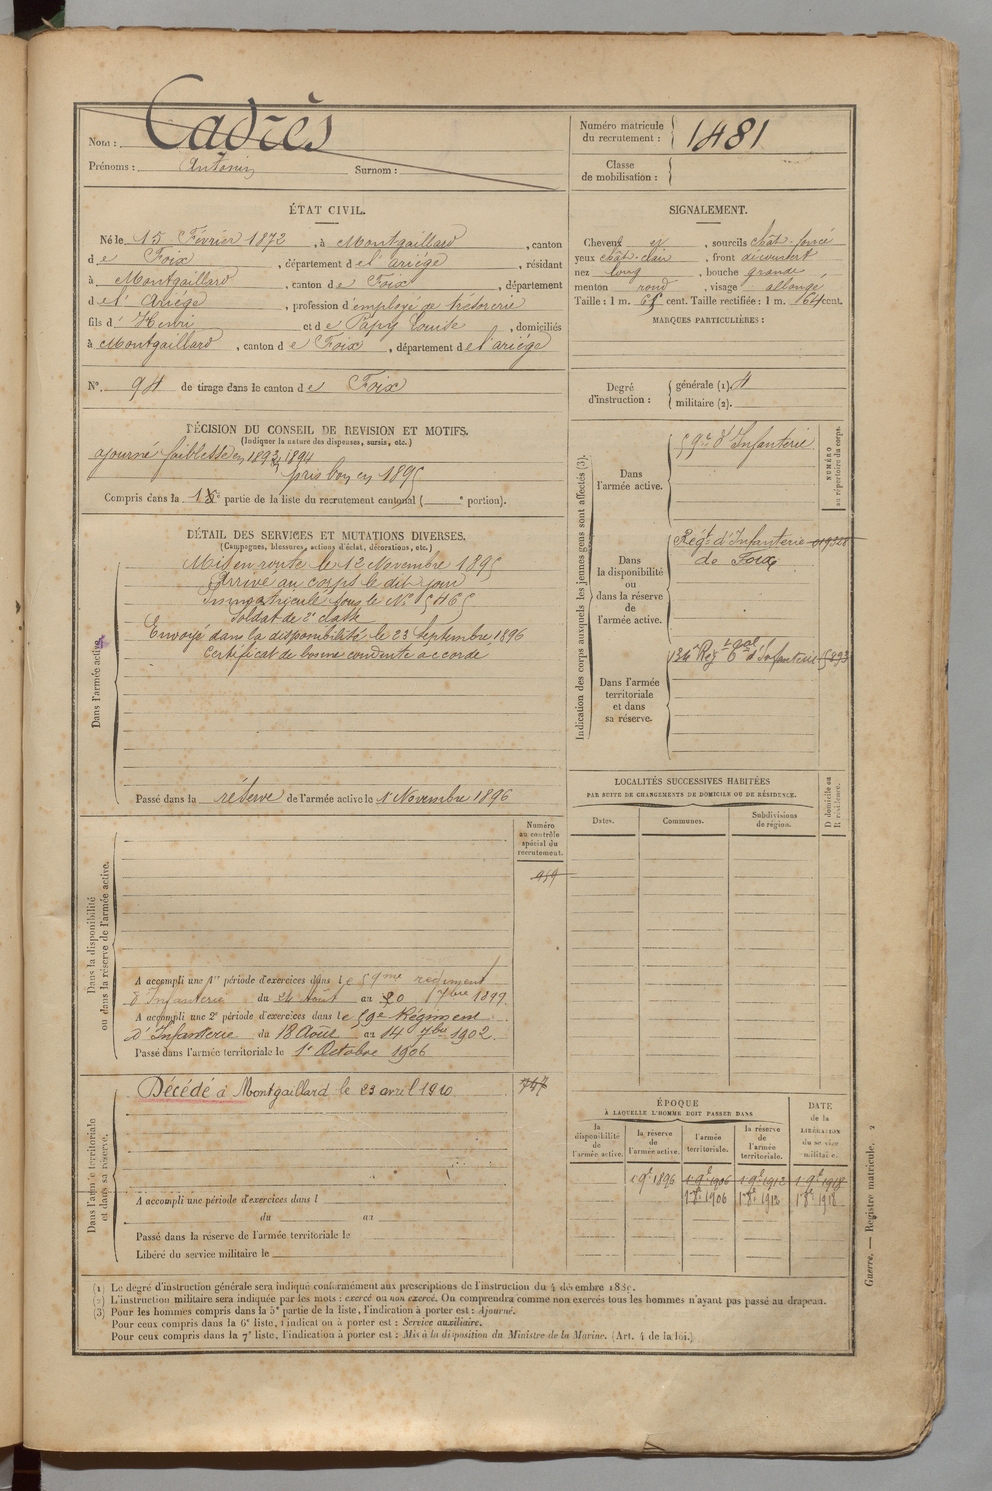 Nom : Cadrès
Prénoms : Antonin Surnom :
Numéro matricule du recrutement : 1481
Classe de mobilisation :
ÉTAT CIVIL.
Né le 15 Février 1872, à Montgaillard, canton
de Foix, département de l'ariége, résidant
à Montgaillard, canton de Foix, département
de l'Ariége, profession d'employé de
fils d' Henri et de Papy Louise, domiciliés
à Montgaillard, canton de Foix, département de l'ariége
N°. 94 de tirage dans le canton de Foix
SIGNALEMENT.
Cheveux et, sourcils chât-foncé
yeux chât-clair, front découvert
nez long, bouche grande
menton rond, visage allongé
Taille : 1 m. cent. Taille rectifiée : 1 m. 64 cent.
MARQUES PARTICULIÈRES :
Degré d'instruction :
générale (1).
militaire (2).
DÉCISION DU CONSEIL DE REVISION ET MOTIFS.
(Indiquer la nature des dispenses, sursis, etc.)
ajourné faiblesse en 1893, 1894
pris bon en 1895
Compris dans la 1e partie de la liste du recrutement cantonal ( e portion).
DÉTAIL DES SERVICES ET MUTATIONS DIVERSES.
(Campagnes, blessures, actions d'éclat, décorations, etc.)
Dans l'armée active.
Mis en route le 12 Novembre 1895
Arrivé au corps le dit jour
Immatriculé sous le N° 5465
Soldat de 2e classe
Envoyé dans la disponibilité le 23 Septembre 1896
Certificat de bonne conduite accordé
Passé dans la réserve de l'armée active le 1 Novembre 1896
Indication des corps auxquels les jeunes gens sont affectés (3).
NUMÉRO au répertoire du corps.
Dans l'armée active.
59e d'Infanterie
Dans la disponibilité ou dans la réserve de l'armée active.
Régt d'Infanterie
de Foix
Dans l'armée territoriale et dans sa réserve.
134 Reg Tal d'Infanterie 5893
LOCALITÉS SUCCESSIVES HABITÉES
PAR SUITE DE CHANGEMENTS DE DOMICILE OU DE RÉSIDENCE.
D domicile ou R résidence.
Dates.
Communes.
Subdivisions de région.
Numéro au contrôle spécial du recrutement.
Dans la disponibilité ou dans la réserve de l'armée active.
A accompli une 1re période d'exercices dans le 59me régiment
d'Infanterie du 24 Août au 20 7bre 1899.
A accompli une 2e période d'exercices dans le 59e Régiment
D'Infanterie du 18 Août au 14 7bre 1902.
Passé dans l'armée territoriale le 1er Octobre 1906
Dans l'armée territoriale et dans sa réserve.
Décédé à Montgaillard le 23 avril 1910
747
A accompli une période d'exercices dans l
du au
Passé dans la réserve de l'armée territoriale le
Libéré du service militaire le
ÉPOQUE
À LAQUELLE L'HOMME DOIT PASSER DANS
DATE de la LIBÉRATION du service militaire.
la disponibilité de l'armée active.
la réserve de l'armée active.
l'armée territoriale.
la réserve de l'armée territoriale.
1 9e 1896 1 9e 1906 1 9e 1912 1 9e 1918
1 8e 1906 1 8e 1912 1 8e 1918
(1) Le degré d'instruction générale sera indiqué conformément aux prescriptions de l'instruction du 4 décembre 1889.
(2) L'instruction militaire sera indiquée par les mots : exercé ou non exercé. On comprendra comme non exercés tous les hommes n'ayant pas passé au drapeau.
(3) Pour les hommes compris dans la 5e partie de la liste, l'indication à porter est : Ajourné.
Pour ceux compris dans la 6e liste, l'indication à porter est : Service auxiliaire.
Pour ceux compris dans la 7e liste, l'indication à porter est : Mis à la disposition du Ministre de la Marine. (Art. 4 de la loi.)
Guerre. — Registre matricule. 2